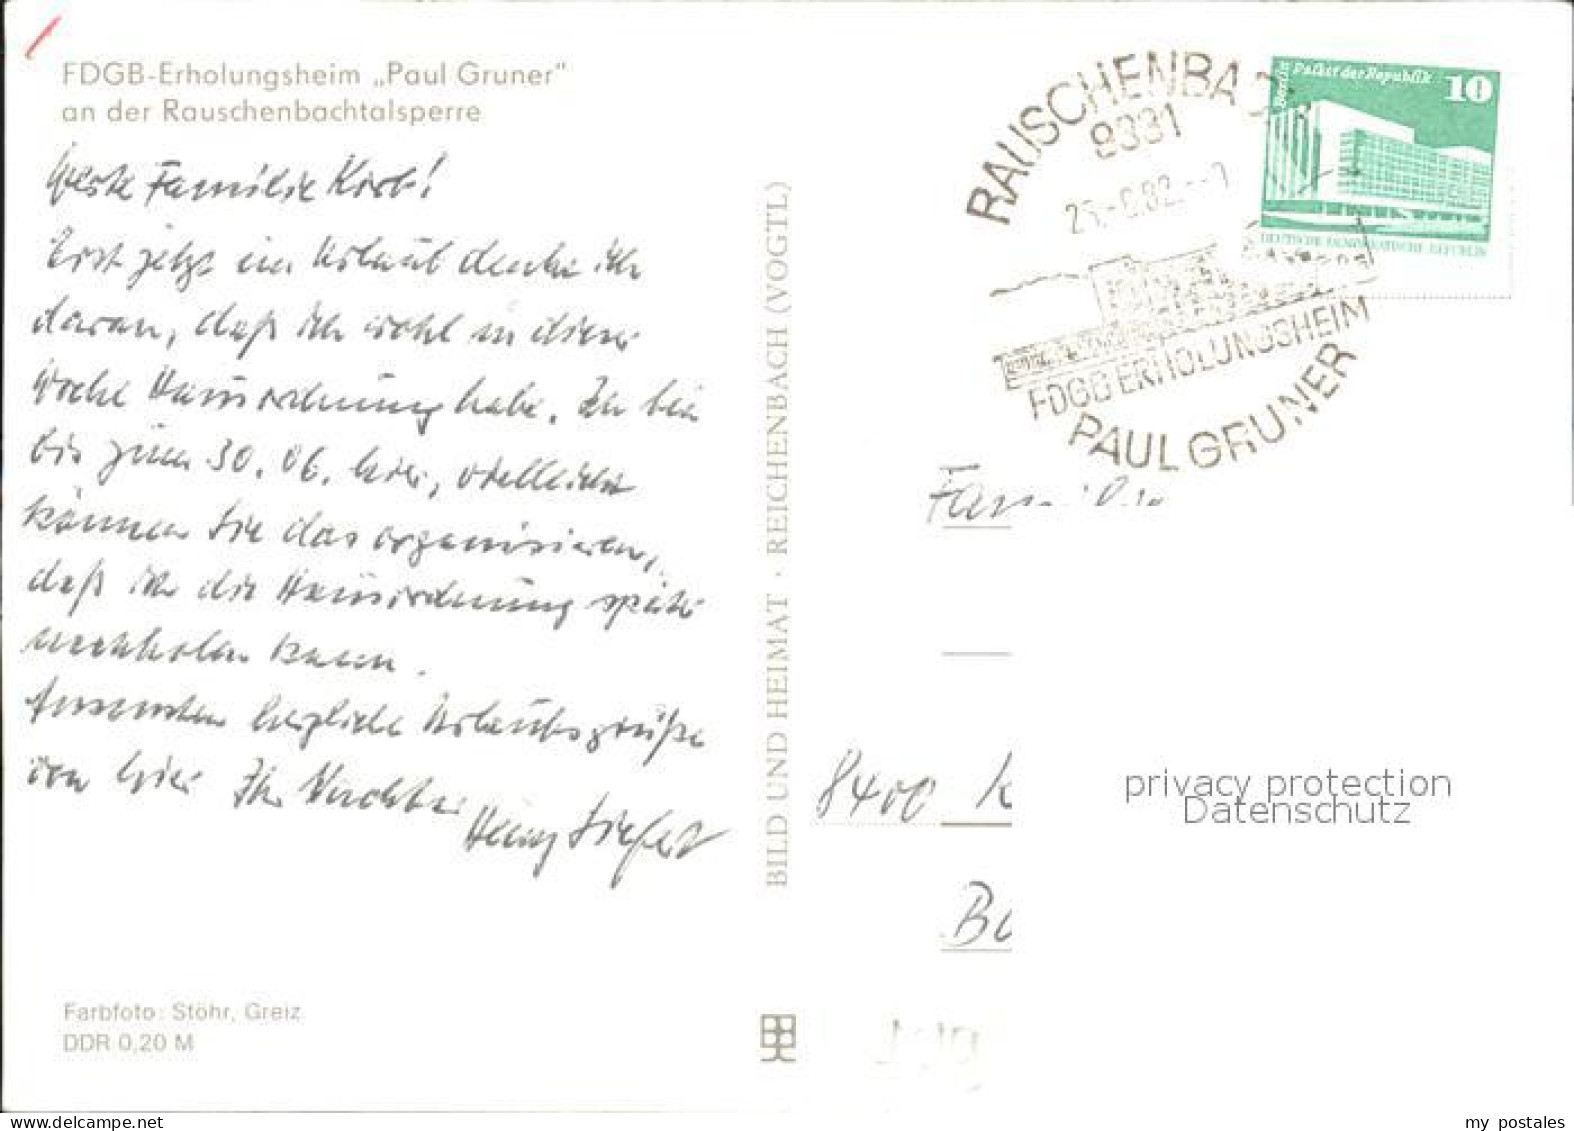 FDGB-Erholungsheim „Paul Gruner"
an der Rauschenbachtalsperre
Werte Familie Korb!
Erst jetzt im Urlaub denke ich
daran, daß ich wohl in dieser
Woche Hausordnung habe. Da bin
bis zum 30.06. hier, vielleicht
können Sie das organisieren,
daß ich die Hausordnung später
nachholen kann.
Ansonsten herzliche Urlaubsgrüße
von hier Ihr Nachbar
Heinz Siefert
Farbfoto: Stöhr, Greiz
DDR 0,20 M
BILD UND HEIMAT · REICHENBACH (VOGTL)
RAUSCHENBACH
9331
82
FDGB ERHOLUNGSHEIM
PAUL GRUNER
Berlin Palast der Republik 10
DEUTSCHE DEMOKRATISCHE REPUBLIK
Familie
8400 K
B
privacy protection
Datenschutz
my postales
www.delcampe.net